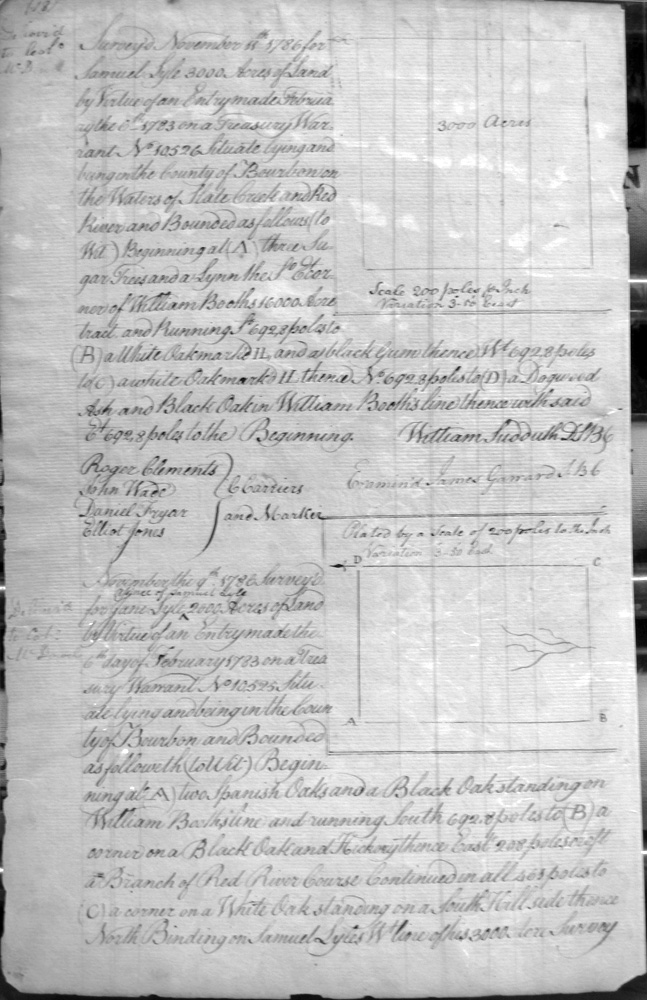 Survey'd November 11th 1786 for
Samuel Lyle 3000 Acres of Land
by Virtue of an Entry made Februa
ry the 6th 1783 on a Treasury War
rant No 10526 Situate lying and
being in the County of Bourbon on
the Waters of Slate Creek and Red
River and Bounded as follows (to
Wit) Beginning at (A) three Su
gar Trees and a Lynn the So Et Cor
ner of William Booths 16000 Acre
tract and Running So 692,8 poles to
(B) a White Oak mark'd IL and a black Gum thence Wt 692,8 poles
to (C) a white Oak mark'd IL thence No 692,8 poles to (D) a Dogwood
Ash and Black Oak in William Booth's line thence with said
Et 692,8 poles to the Beginning. William Sudduth DSBC
3000 Acres
Scale 200 poles pr Inch
Variation 3-50 East
Roger Clements
John Wade
Daniel Fryar
Elliot Jones
C Carriers
and Marker
Examin'd James Garrard SBC
Plated by a Scale of 200 poles to the Inch
Variation 3-50 East
D C
A B
November the 9th 1786 Survey'd
for Jane Lyle Assnee of Samuel Lyle 2000 Acres of Land
by Virtue of an Entry made the
6th day of February 1783 on a Trea
sury Warrant No 10525 Situ
ate lying and being in the Coun
ty of Bourbon and Bounded
as followeth (to Wit) Begin
ning at (A) two Spanish Oaks and a Black Oak standing on
William Booths line and running South 692.8 poles to (B) a
corner on a Black Oak and Hickory thence East 208 poles crost
a Branch of Red River Course Continued in all 463 poles to
(C) a corner on a White Oak standing on a South Hill side thence
North Binding on Samuel Lyles Wt line of his 3000 Acre Survey